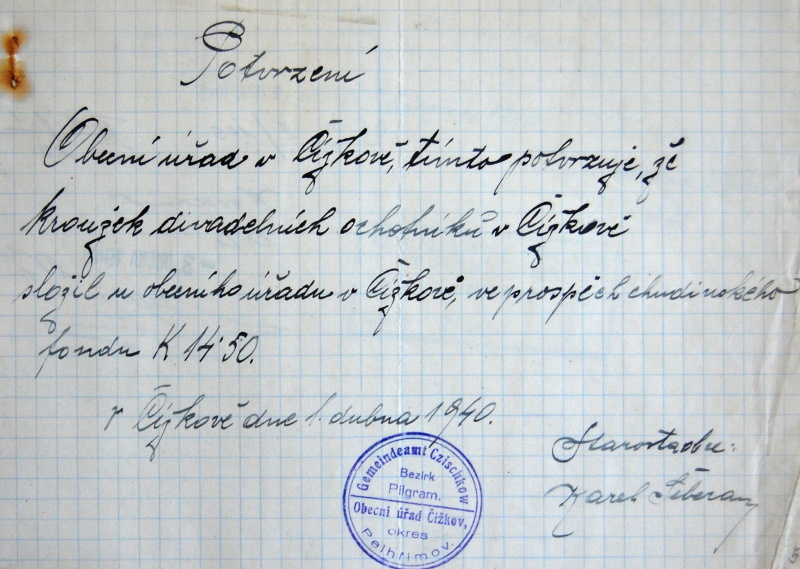 Potvrzení
Obecní úřad v Čížkově, tímto potvrzuje, že
kroužek divadelních ochotníků v Čížkově
složil u obecního úřadu v Čížkově, ve prospěch chudinského
fondu K 14·50.
v Čížkově dne 1. dubna 1940.
Starosta obce:
Karel
Gemeindeamt Czischkow
Bezirk
Pilgram.
Obecní úřad Čížkov,
okres
Pelhřimov.
5